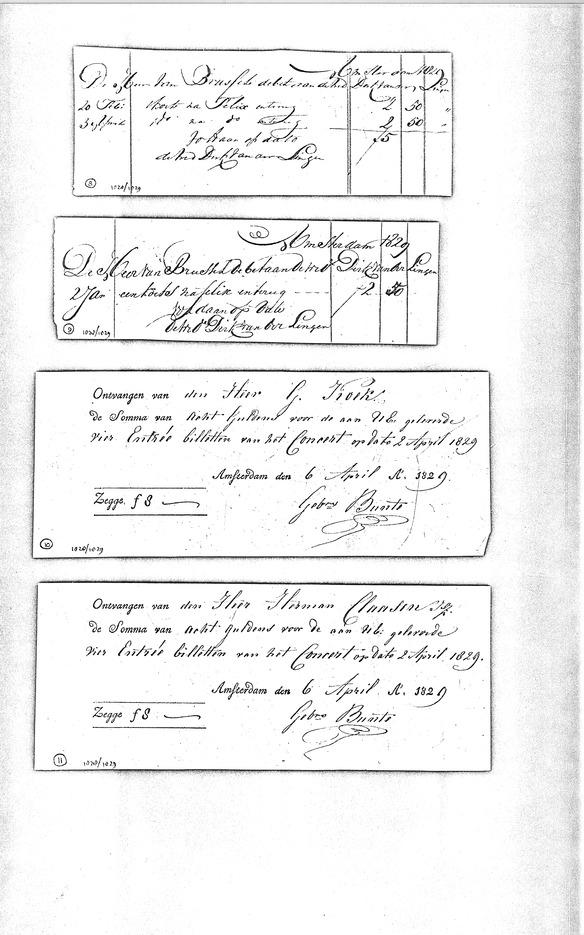 Amsterdam 1829
De Heer van Brussels debet aan de Wed Dirk van der Lingen
20 Feb: koets na Felix en terug 2 50 "
3 do na do en terug 2 50 "
f5
Voldaan op dato
de Wed Dirk van der Lingen
8 1028/1029
Amsterdam 1829
De Heer van Brussel Debet aan De Wed Dirk van der Lingen
2 Jan een koets na felix en terug f2 50
voldaan op Dato
De Wed Dirk van der Lingen
9 1028/1029
Ontvangen van den Heer G. Koek
de Somma van acht guldens voor de aan UE. geleverde
vier Entrée billetten van het Concert op dato 2 April 1829
Amsterdam den 6 April A. 1829.
Zegge f 8
Gebrs Bunte
10 1028/1029
Ontvangen van den Heer Herman Claasen
de Somma van acht guldens voor de aan UE: geleverde
vier Entrée billetten van het Concert op dato 2 April 1829.
Amsterdam den 6 April A. 1829
Zegge f 8
Gebrs Bunte
11 1028/1029